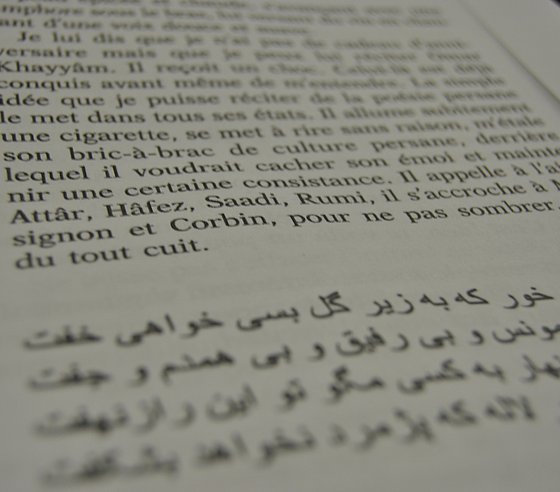 amphore sous le bras, lui
ant d'une voix douce et
Je lui dis que je n'ai pas de cadeau d'anni-
versaire mais que je peux lui réciter Omar
Khayyâm. Il reçoit un choc. Celui-là est déjà
conquis avant même de m'entendre. La simple
idée que je puisse réciter de la poésie persane
le met dans tous ses états. Il allume subitement
une cigarette, se met à rire sans raison, m'étale
son bric-à-brac de culture persane, derrière
lequel il voudrait cacher son émoi et mainte
nir une certaine consistance. Il appelle à l'a
Attâr, Hâfez, Saadi, Rumi, il s'accroche à M
signon et Corbin, pour ne pas sombrer
du tout cuit.
خور که به زیر گل بسی خواهی خفت
مونس و بی رفیق و بی همدم و جفت
به کسی مگو تو این راز نهفت
لاله که پژمرد نخواهد بشکفت